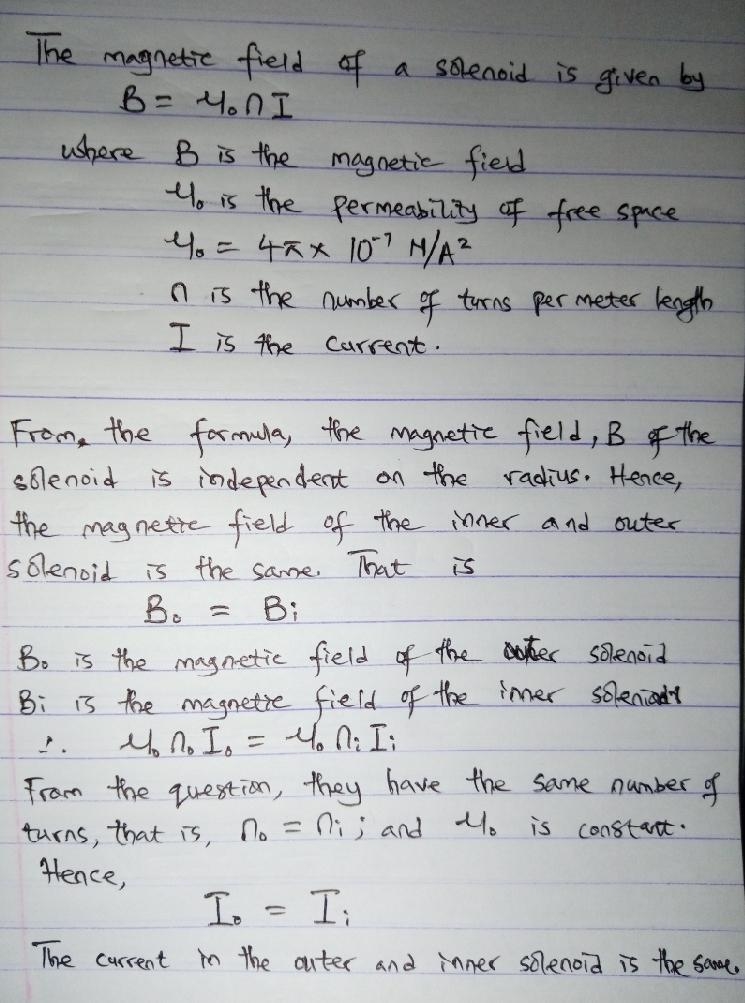 The magnetic field of a solenoid is given by
B = μ₀nI
where B is the magnetic field
μ₀ is the permeability of free space
μ₀ = 4π × 10⁻⁷ N/A²
n is the number of turns per meter length
I is the current.
From the formula, the magnetic field, B of the
solenoid is independent on the radius. Hence,
the magnetic field of the inner and outer
solenoid is the same. That is
B₀ = Bi
B₀ is the magnetic field of the outer solenoid
Bi is the magnetic field of the inner solenoid
∴ μ₀n₀I₀ = μ₀niIi
From the question, they have the same number of
turns, that is, n₀ = ni; and μ₀ is constant.
Hence,
I₀ = Ii
The current in the outer and inner solenoid is the same.